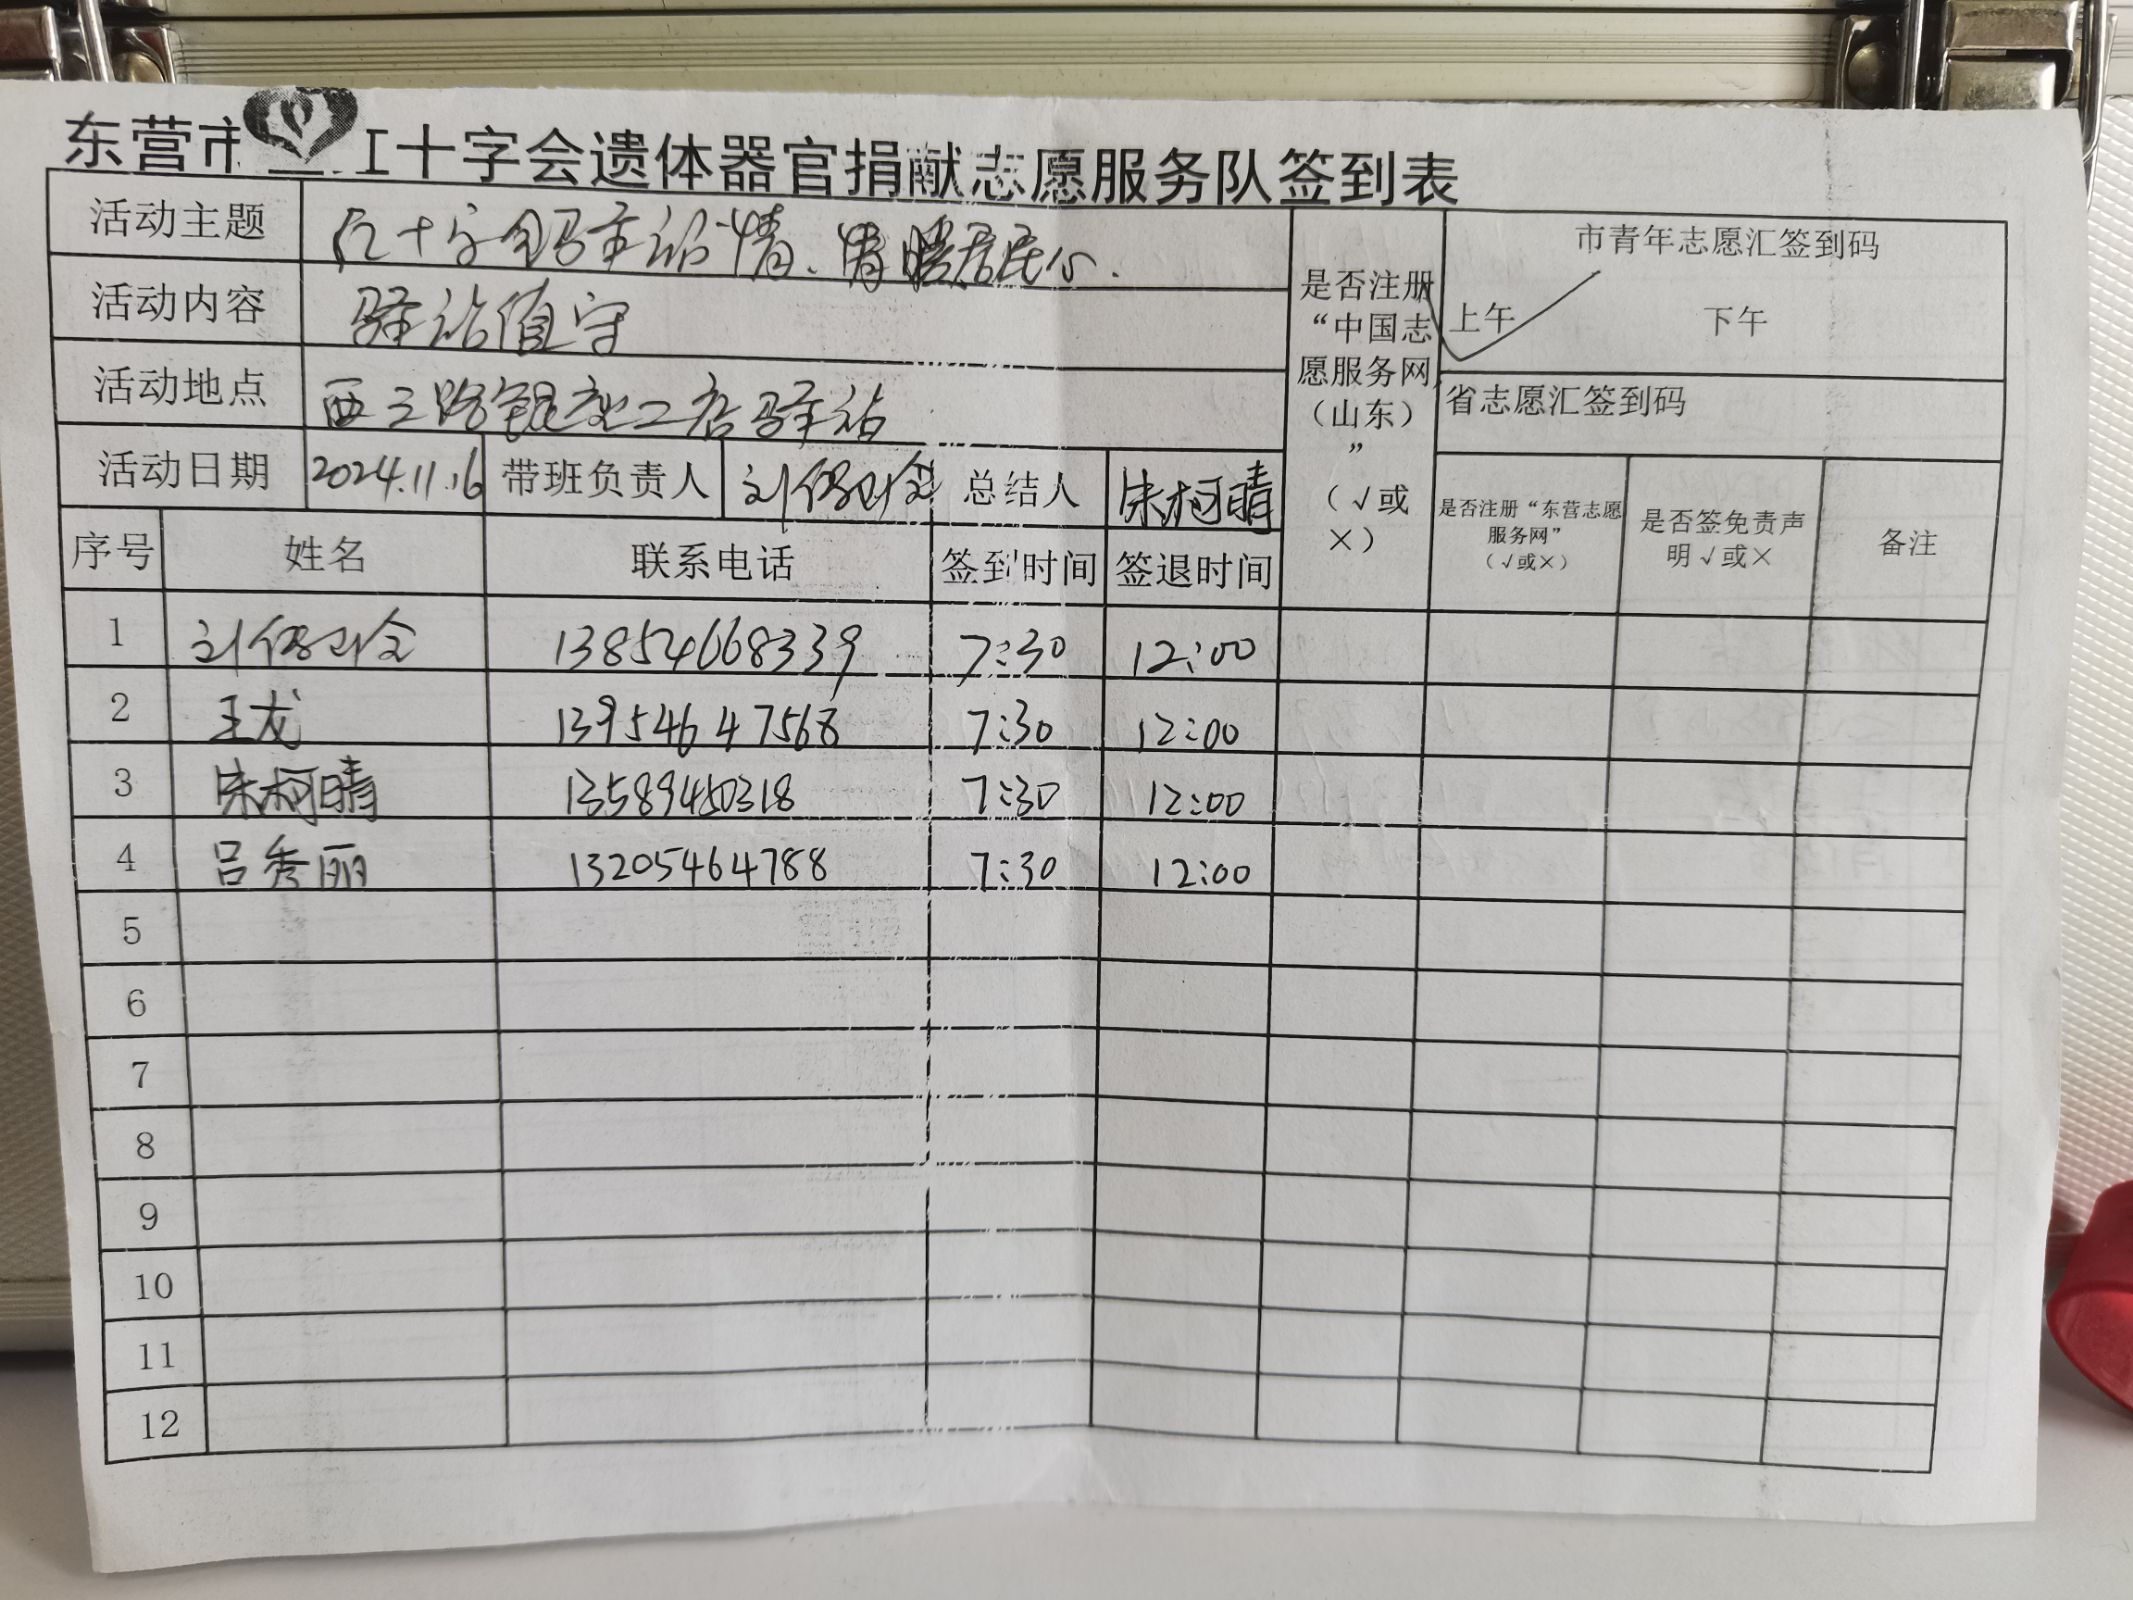 东营市 红十字会遗体器官捐献志愿服务队签到表
活动主题 红十字 驿站情、情暖居民心.
活动内容 驿站值守
活动地点 西三路 二店驿站
活动日期 2024.11.16 带班负责人 刘 总结人 朱柯晴
是否注册“中国志愿服务网（山东）”（√或×）
市青年志愿汇签到码
上午 下午
省志愿汇签到码
序号 姓名 联系电话 签到时间 签退时间 是否注册“东营志愿服务网”（√或×） 是否签免责声明√或× 备注
1 刘 13854668339 7:30 12:00
2 王龙 13954647568 7:30 12:00
3 朱柯晴 13589450318 7:30 12:00
4 吕秀丽 13205464788 7:30 12:00
5
6
7
8
9
10
11
12